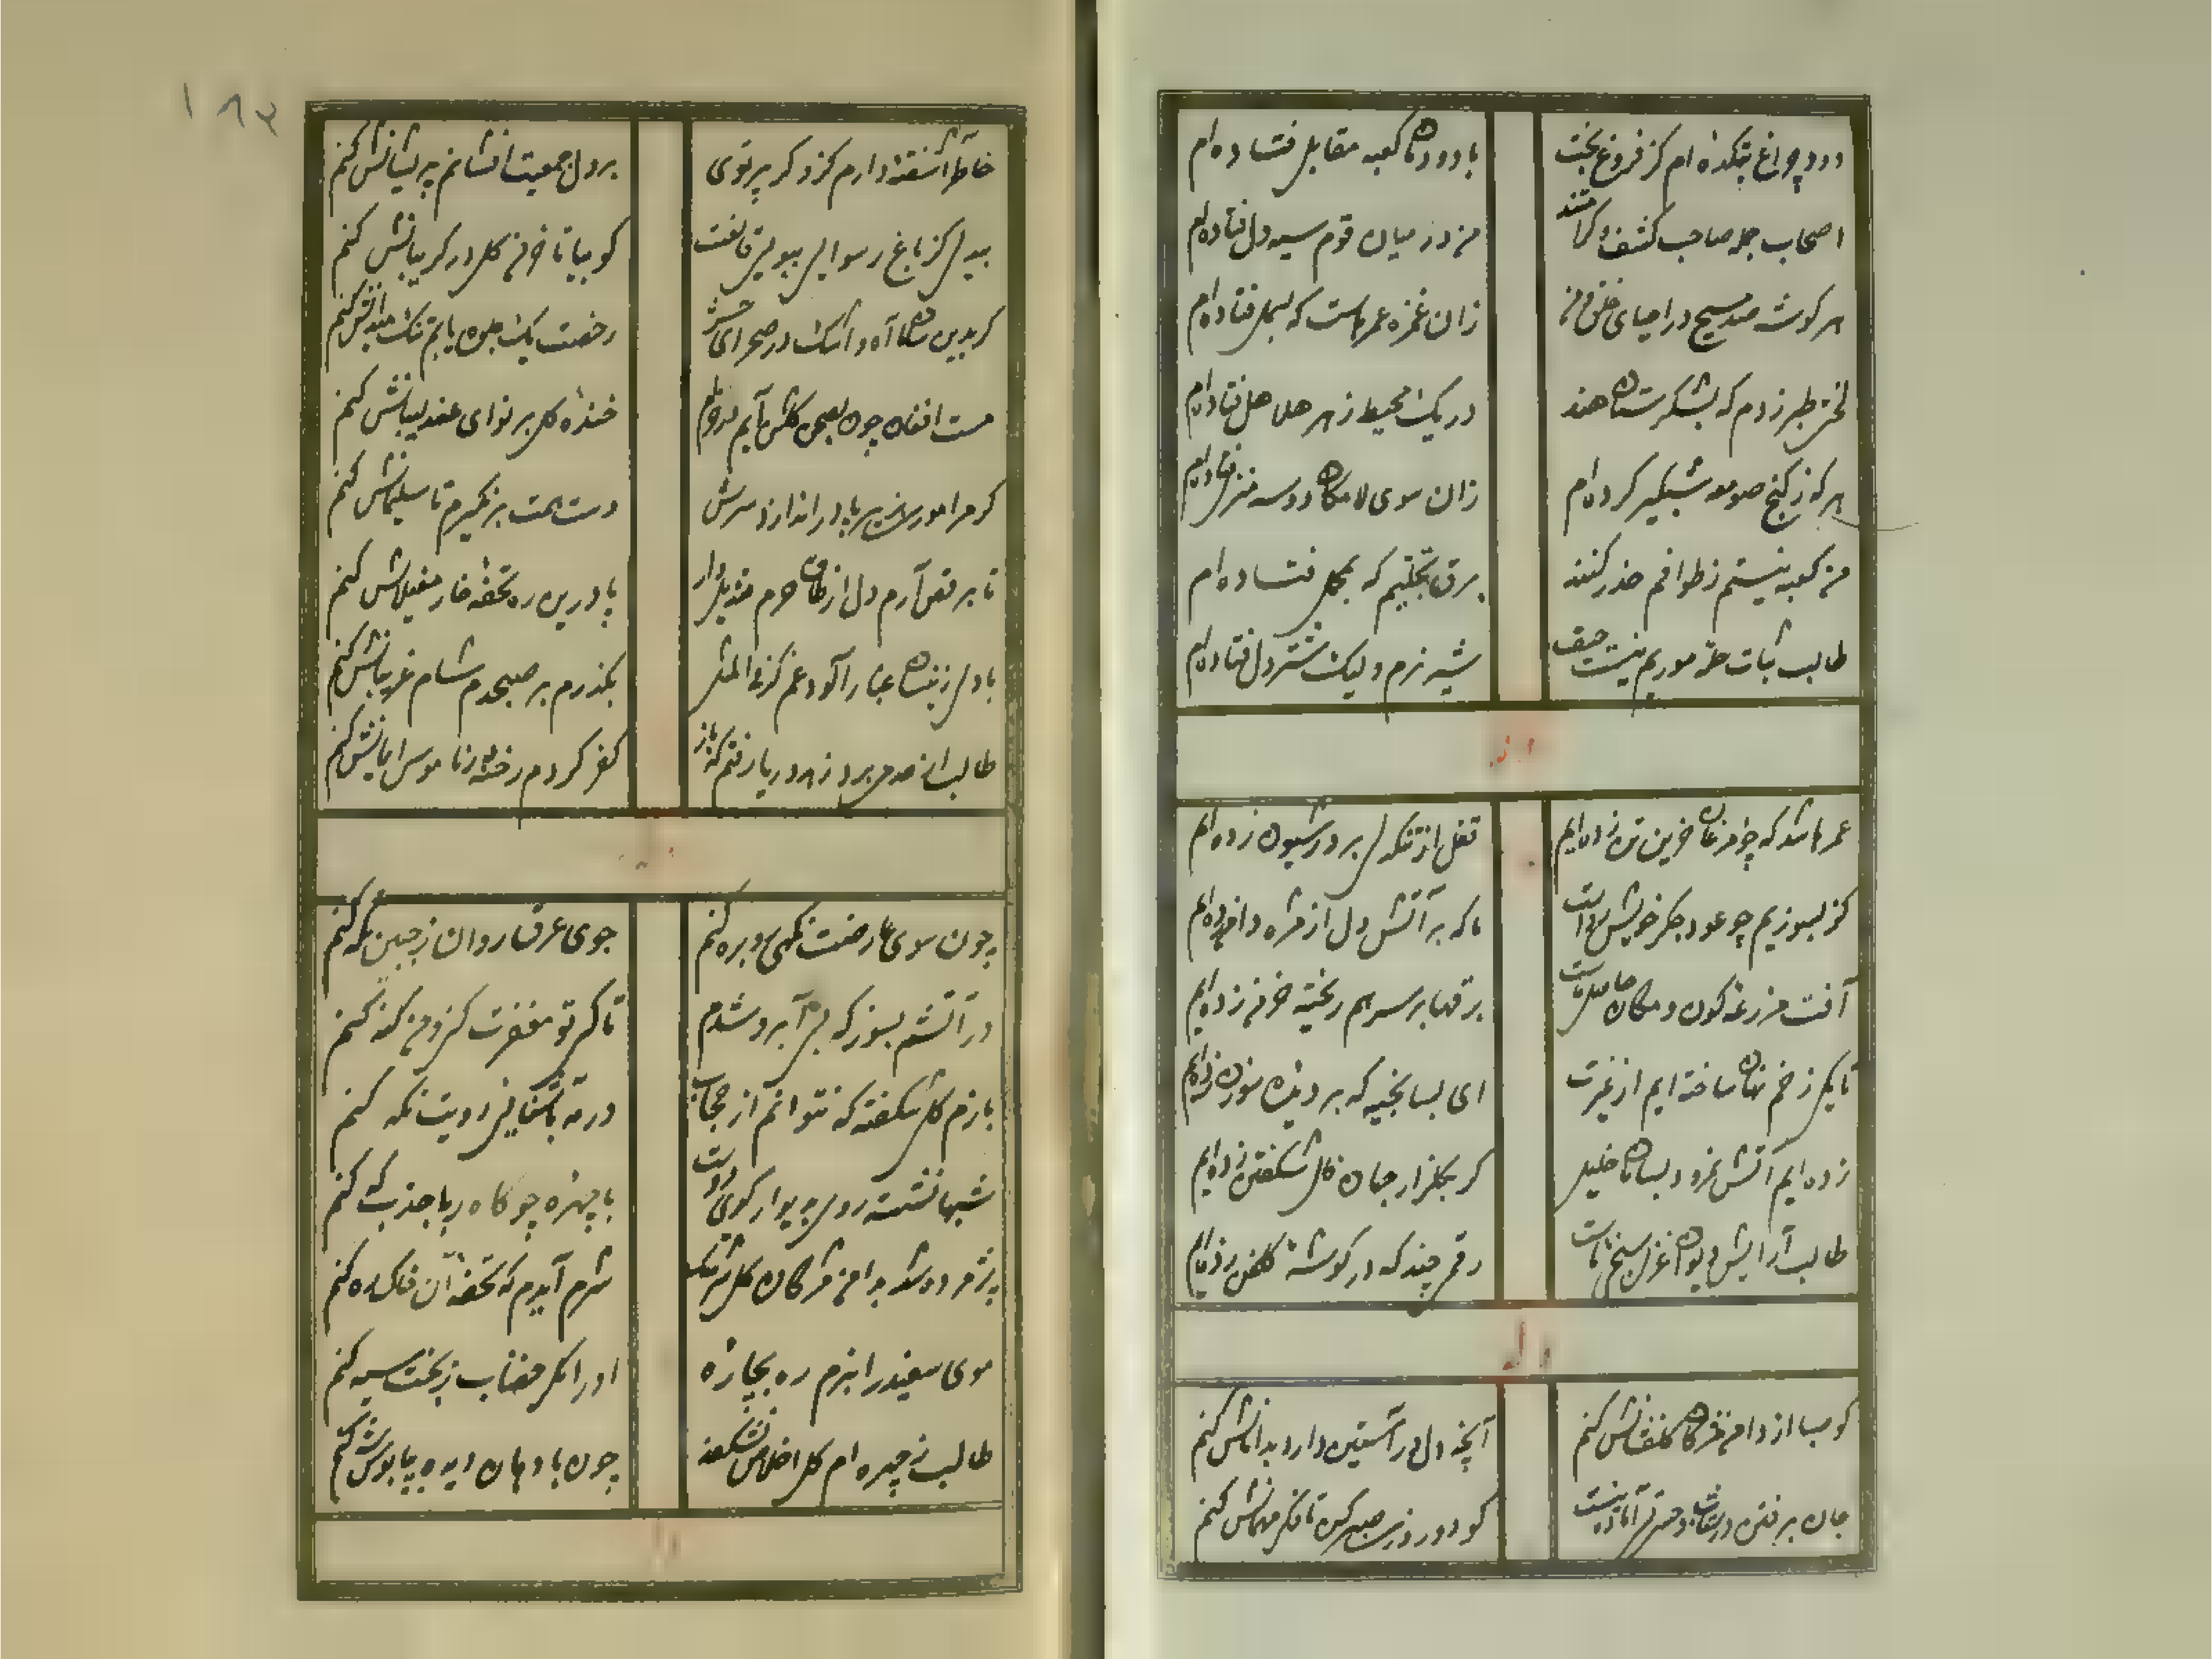 درد چراغ بتکده ام کز فروغ بخت
با دودمان کعبه مقابل فتاده ام
اصحاب جمله صاحب کشف و کرامتند
من در میان قوم سیه دل فتاده ام
هر گوشه صد مسیح در احیای
زان غمزه عمرهاست که بسمل فتاده ام
لخت طبرزدم که بشکرستان هند
در یک محیط زهر هلاهل فتاده ام
هر که ز کنج صومعه شبگیر کرده ام
زان سوی لامکان دو سه منزل فتاده ام
من کعبه نیستم ز طوافم حذر کنید
برق تجلیم که بمحمل فتاده ام
طالب ثبات موریم نیست حیف
شیر نرم ولیک شتر دل فتاده ام
عمرها شد که چو مرغان حزین تن زده ایم
قفل از تنگدلی بر در شیون زده ایم
گر بسوزیم چو عود جگر خویش رواست
ما که بر آتش دل از مژه دامن زده ایم
آفت مزرعه کون و مکان حاصل ماست
برقها بر سر هم ریخته خرمن زده ایم
تا یکی زخم نهان ساخته ایم از غیرت
ای بسا بخیه که بر دیده سوزن زده ایم
زده ایم آتش نمرود بسامان خلیل
گر بگلزار جهان فال شکفتن زده ایم
طالب آرایش دیوان غزل سنجی ماست
رقم چند که در گوشه گلخن زده ایم
کو صبا از دامن مژگان گلفشانش کنم
آنچه دل در آستین دارد بدامانش کنم
جان برفتن در شتاب و حسرتی آماده نیست
کو دو روزی صبر کن تا فکر مهمانش کنم
خاطر آشفته دارم کز و گر پرتوی
بر دل جمعیت افشانم پریشانش کنم
بیدلی کز باغ رسوایی ببویی قانعست
کو بیا تا خرمن گل در گریبانش کنم
گر بدین سامان آه و اشک در صحرای حشر
رخصت یک جلوه یابم تنگ میدانش کنم
مست افغان چون بصحن گلشن آیم
خنده گل بر نوای عندلیبانش کنم
گر مرا موری بپا در اندازد سرش
دست همت برنگیرم تا سلیمانش کنم
تا برقص آرم دل از طاق حرم قندیل وار
پا درین ره تحفه خار مغیلانش کنم
با دلی زینسان غبار آلود غم کز فی المثل
بگذرم بر صبحدم شام غریبانش کنم
طالب از برد زهد ریا رفتم که باز
کفر گردم رخنه در ناموس ایمانش کنم
چون سوی عارضت نگهی روبره کنم
جوی عرق روان ز جبین نگه کنم
در آتشم بسوز که بی آبرو شدم
تا کی تو مغفرت کنی و من گنه کنم
بازم گلی شکفته که نتوانم از حجاب
در مه بآشنایی رویت نگه کنم
شبها نشسته روی بدیوار کوی دوست
با چهره چو کاه ربا جذب که کنم
پژمرده شد بدامن مژگان گل سرشک
شرم آیدم که تحفه آن خاک ره کنم
موی سفید را نبرم ره بچاره
او را مگر خضاب ز بخت سیه کنم
طالب ز چهره ام گل اخلاص نشکفد
چون با دهان دیده بپابوس شه کنم
۱۸۳